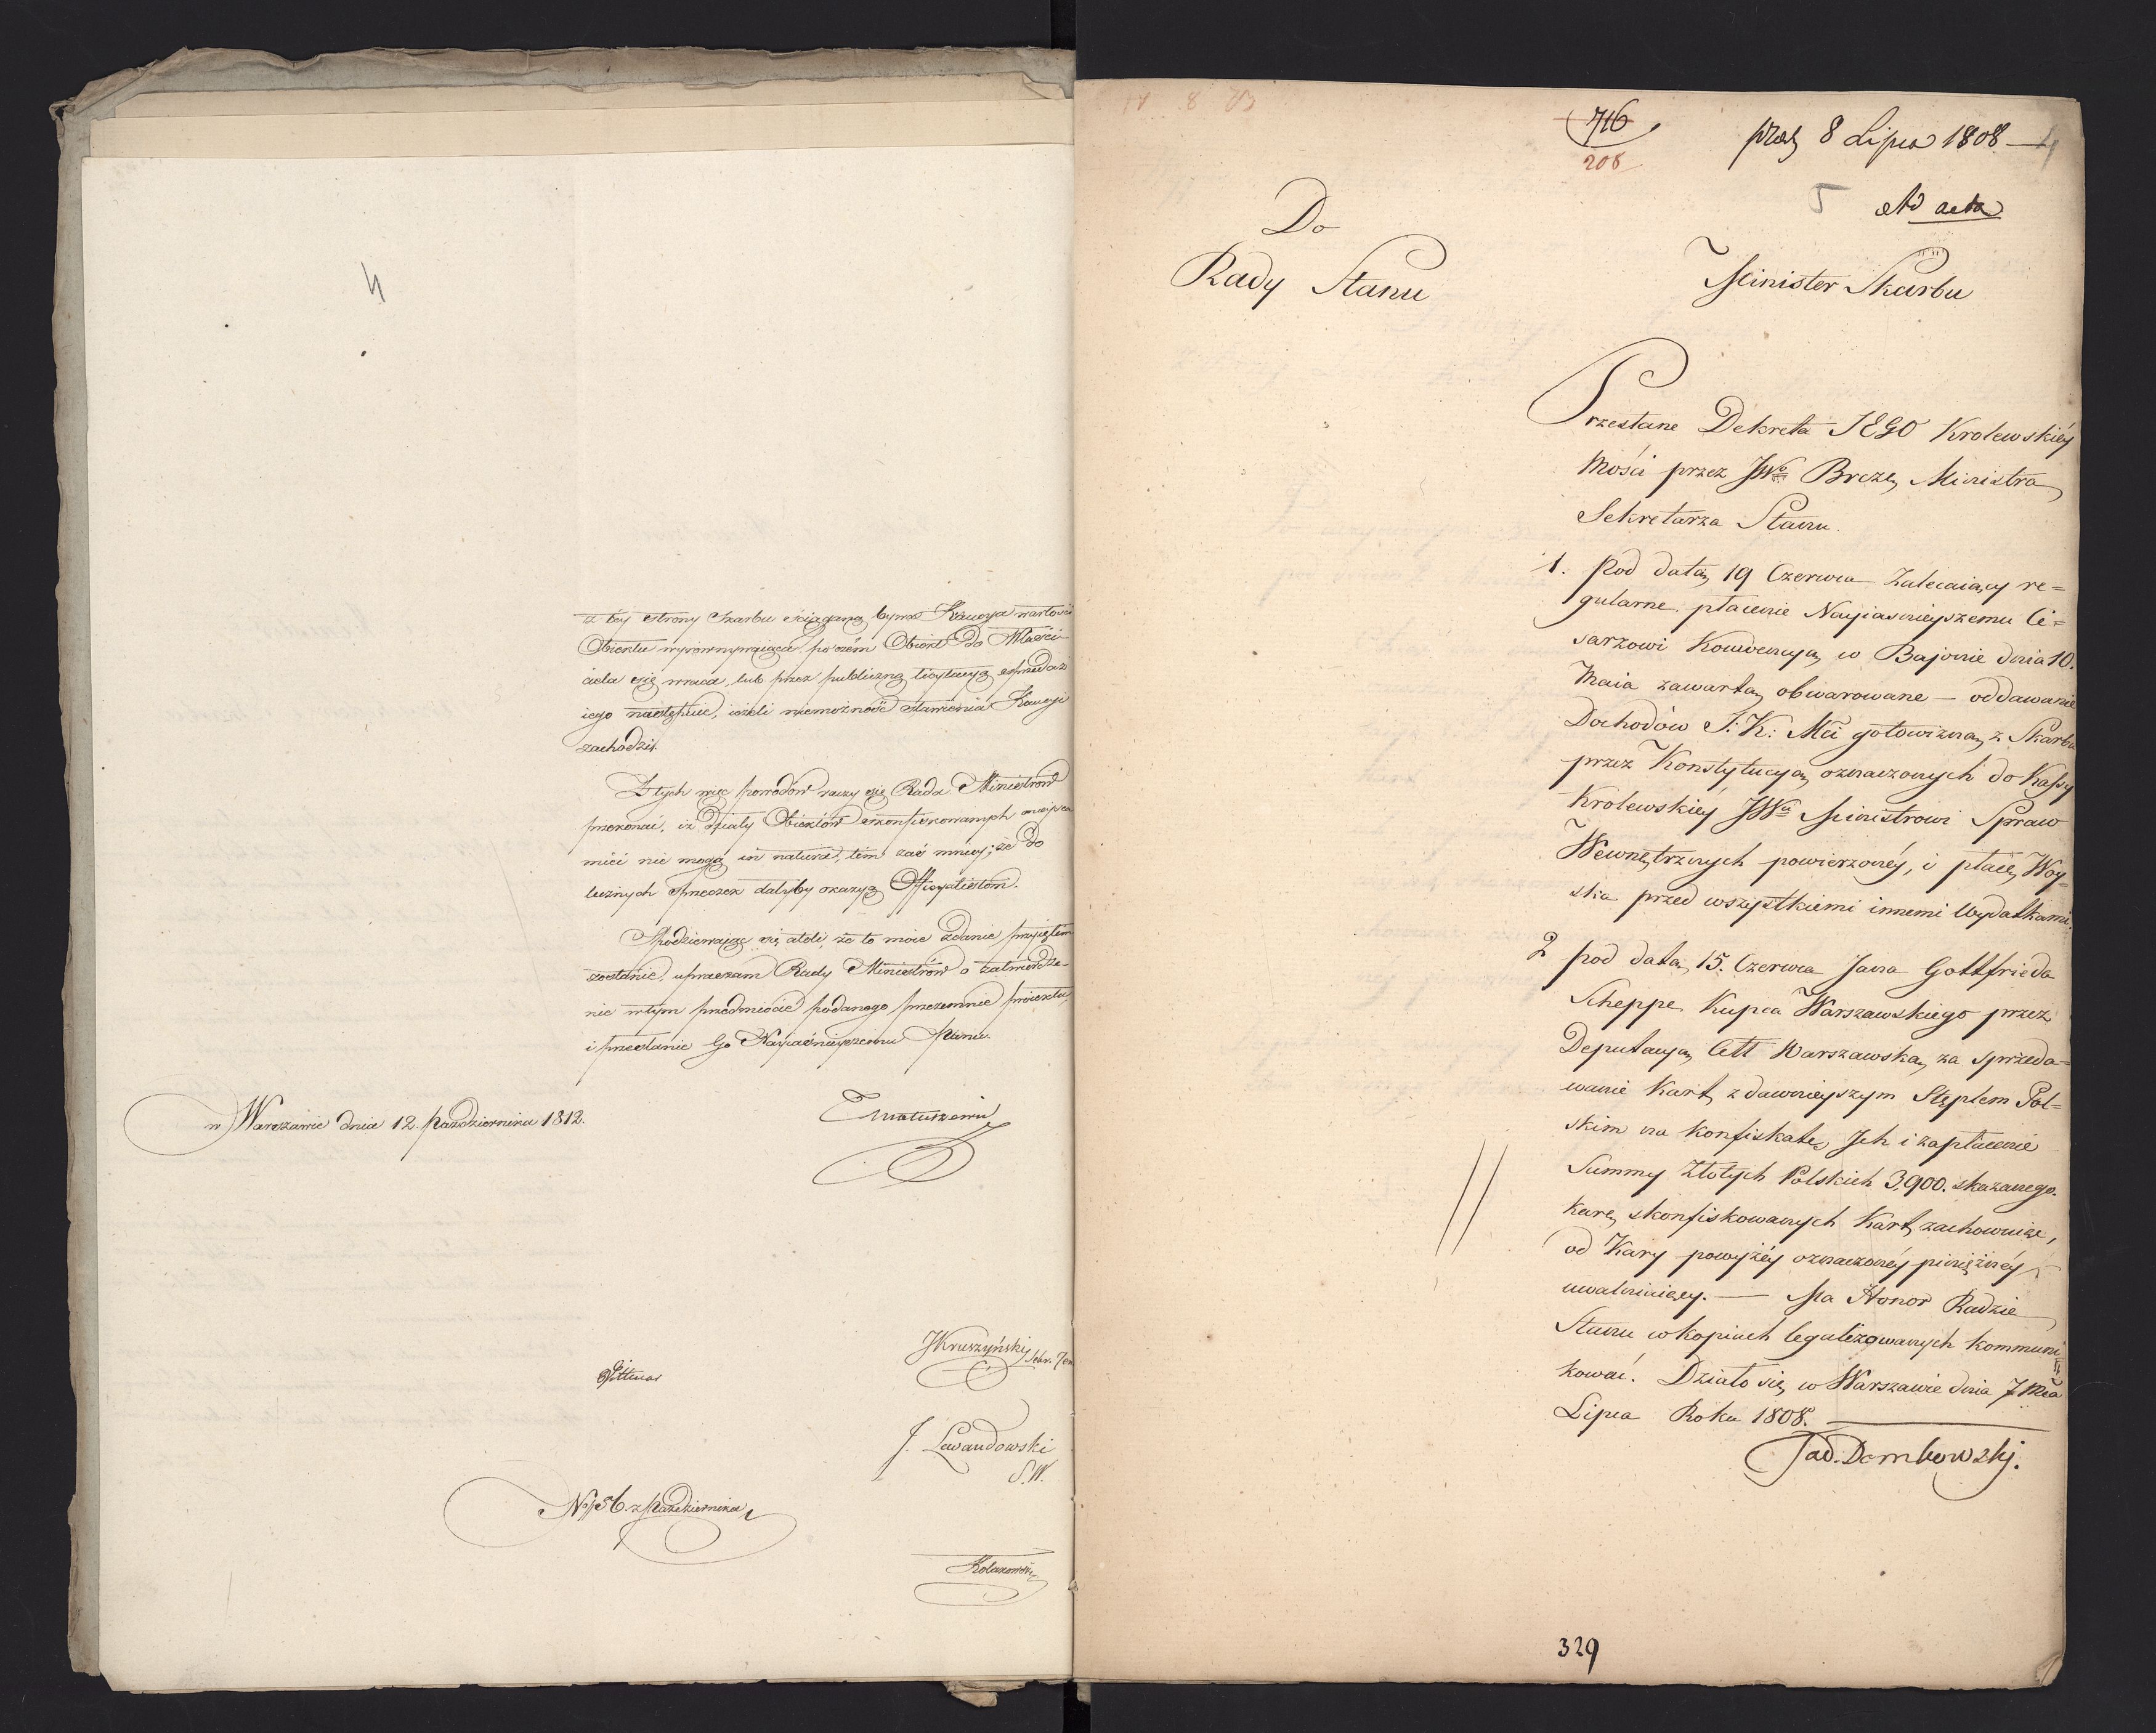 4
też strony Skarbu ściąganą bywa Kaucya wartości
Obiektu wyrownywaiąca, poczém Obiekt do Właści-
ciela się wraca, lub przez publiczną licytacyą sprzedaż
iego następuie, ieżeli niemożność stawienia Kaucyi
zachodzi.
Z tych więc powodów raczy się Rada Ministrów
przekonać, iż działy Obiektów skonfiskowanych mieysca
mieć nie mogą in natura, tém zaś mniey; że do
licznych sprzeczek dałyby okazyą Officyalistom.
Spodziewaiąc się atoli, że to moie zdanie przyiętém
zostanie, upraszam Rady Ministrów o zatwierdze-
nie w tym przedmiocie podanego przezemnie proiektu,
i przesłanie Go Nayiaśnieyszemu Panu.
w Warszawie dnia 12. Października 1812.
Matuszewic
JKruszyński Sekr. Jen
Dittmar
J. Lewandowski
S. W.
No 156. z Października
Kolanowski
716
208
prez 8 Lipca 1808
4
5
Ad acta
Do
Rady Stanu
Minister Skarbu
Przesłane Dekreta JEGO Krolewskiéy
Mości przez JWo Brezę Ministra
Sekretarza Stanu.
1. Pod datą 19 Czerwca Zalecaiący re=
gularne płacenie Nayiasnieyszemu Ce=
sarzowi Konwencyą w Bajonie dnia 10.
Maia zawartą obwarowane — oddawanie
Dochodów J: K: Mci gotowizną z Skarbu
przez Konstytucyą oznaczonych do Kassy
Krolewskiéy JWu Ministrowi Spraw
Wewnętrznych powierzonéy, i płacę Woy=
ska przed wszystkiemi innemi Wydatkami.
2 pod datą 15. Czerwca Jana Gottfrieda
Scheppe Kupca Warszawskiego przez
Deputacyą Cett Warszawską za sprzeda=
wanie Kart z dawnieyszym Stęplem Pol=
skim na konfiskatę Jch i zapłacenie
Summy Złotych Polskich 3,900. skazanego.
Karę skonfiskowanych Kart zachowuiąc,
od Kary powyżéy oznaczonéy pieniężnéy
uwalniaiący. — Ma Honor Radzie
Stanu w kopiach legalizowanych kommuni
kować. Działo się w Warszawie dnia 7 Mca
Lipca Roku 1808.
Tad. Dembowskj.
329